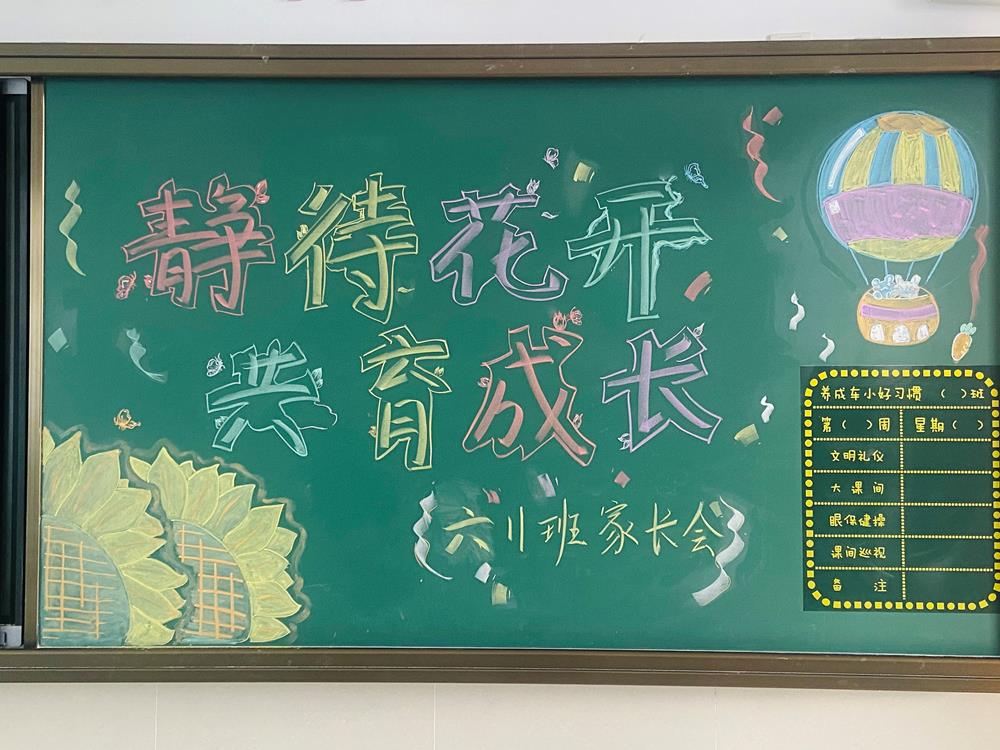 静待花开
共育成长
六11班家长会
养成车小好习惯 （ ）班
第（ ）周 星期（ ）
文明礼仪
大课间
眼保健操
课间巡视
备注